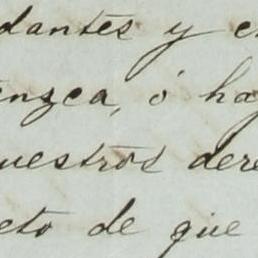 dantes y e
enzca, ó ha
uestros dere
eto de que